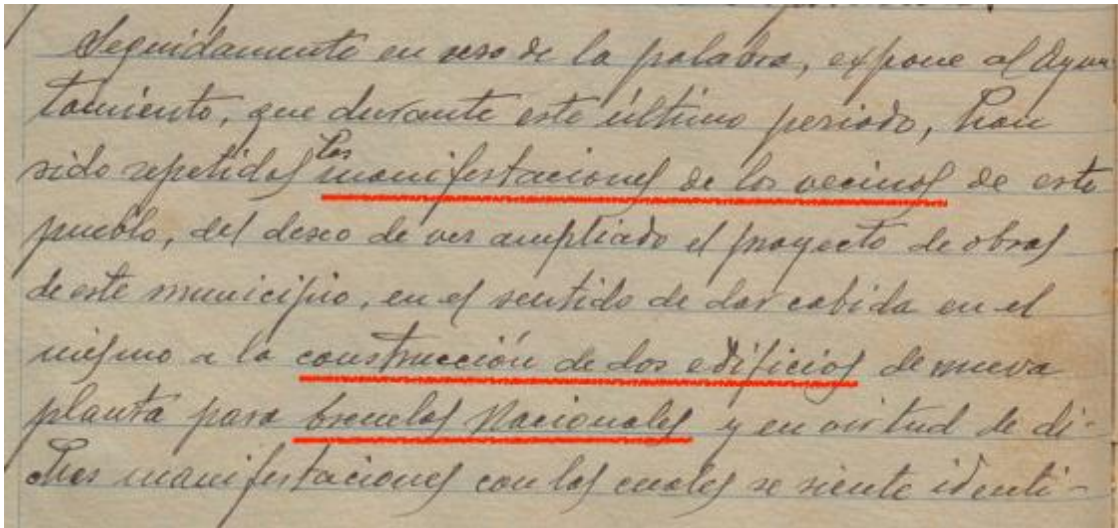 Seguidamente en uso de la palabra, expone al Ayun
tamiento, que durante este último periodo, han
sido repetidas las manifestaciones de los vecinos de este
pueblo, del deseo de ver ampliado el proyecto de obras
de este municipio, en el sentido de dar cabida en el
mismo a la construcción de dos edificios de nueva
planta para Escuelas Nacionales y en virtud de di-
chas manifestaciones con las cuales se siente identi-